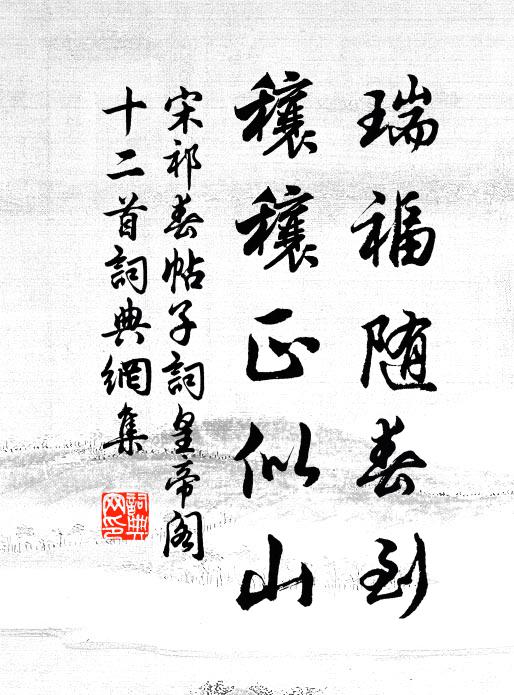 瑞福随春到
穰穰正似山
宋祁春帖子詞皇帝阁
十二首詞典網集
詞典网印